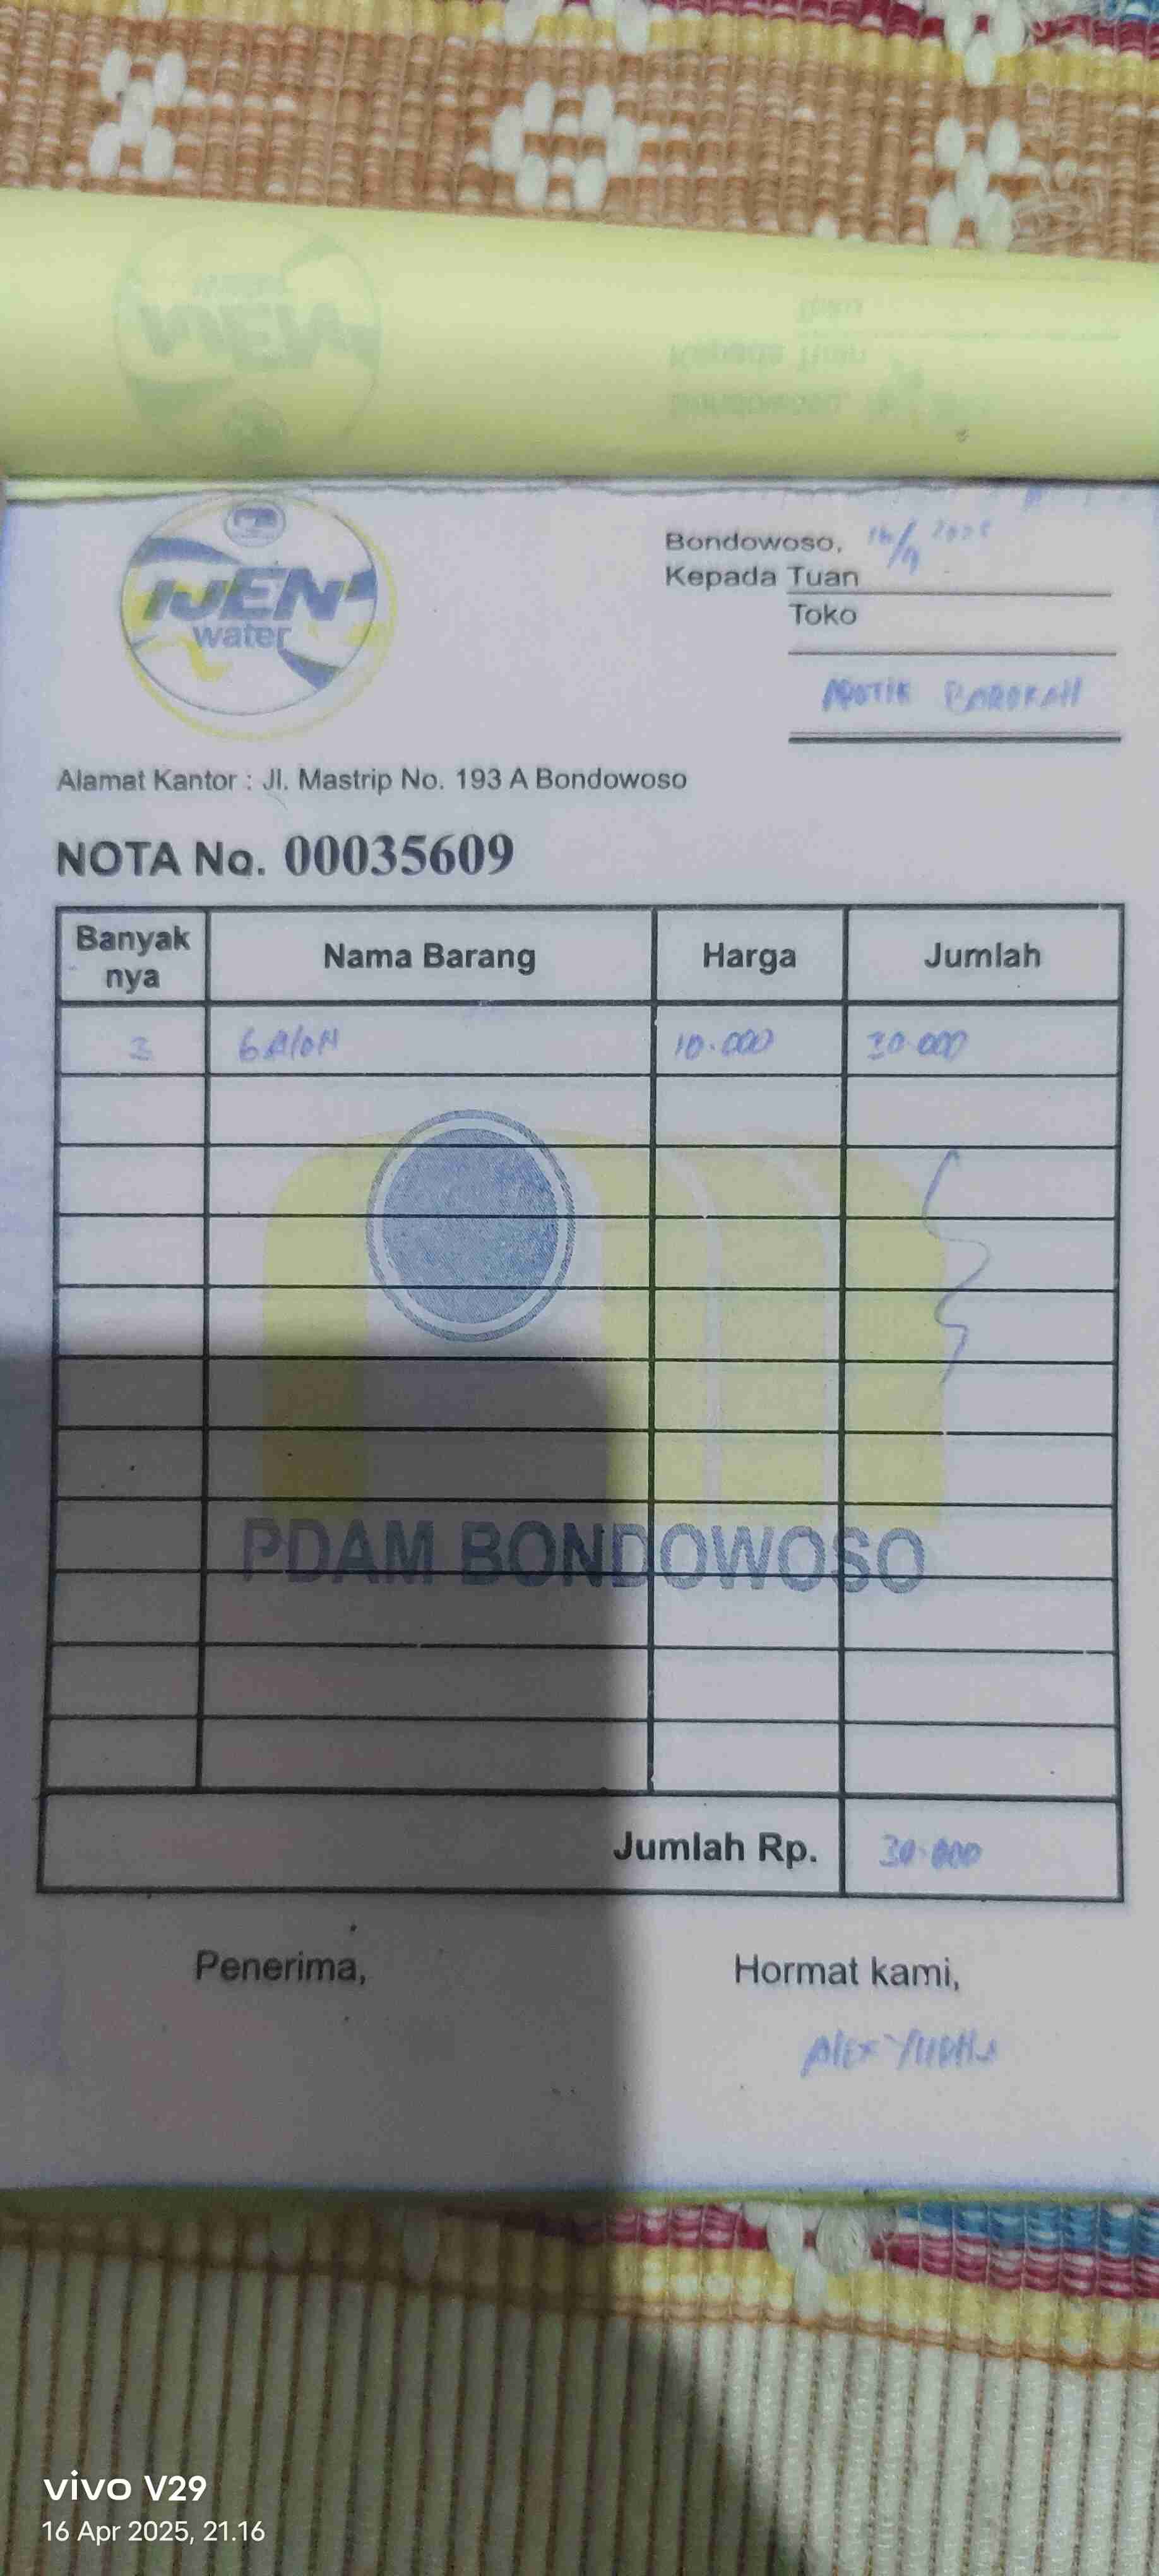 IJEN
water
Bondowoso, 16/4 2025
Kepada Tuan
Toko
APOTIK BAROKAH
Alamat Kantor : Jl. Mastrip No. 193 A Bondowoso
NOTA No. 00035609
Banyak nya Nama Barang Harga Jumlah
3 GAlON 10.000 30.000
PDAM BONDOWOSO
Jumlah Rp. 30.000
Penerima, Hormat kami,
Alex
vivo V29
16 Apr 2025, 21.16